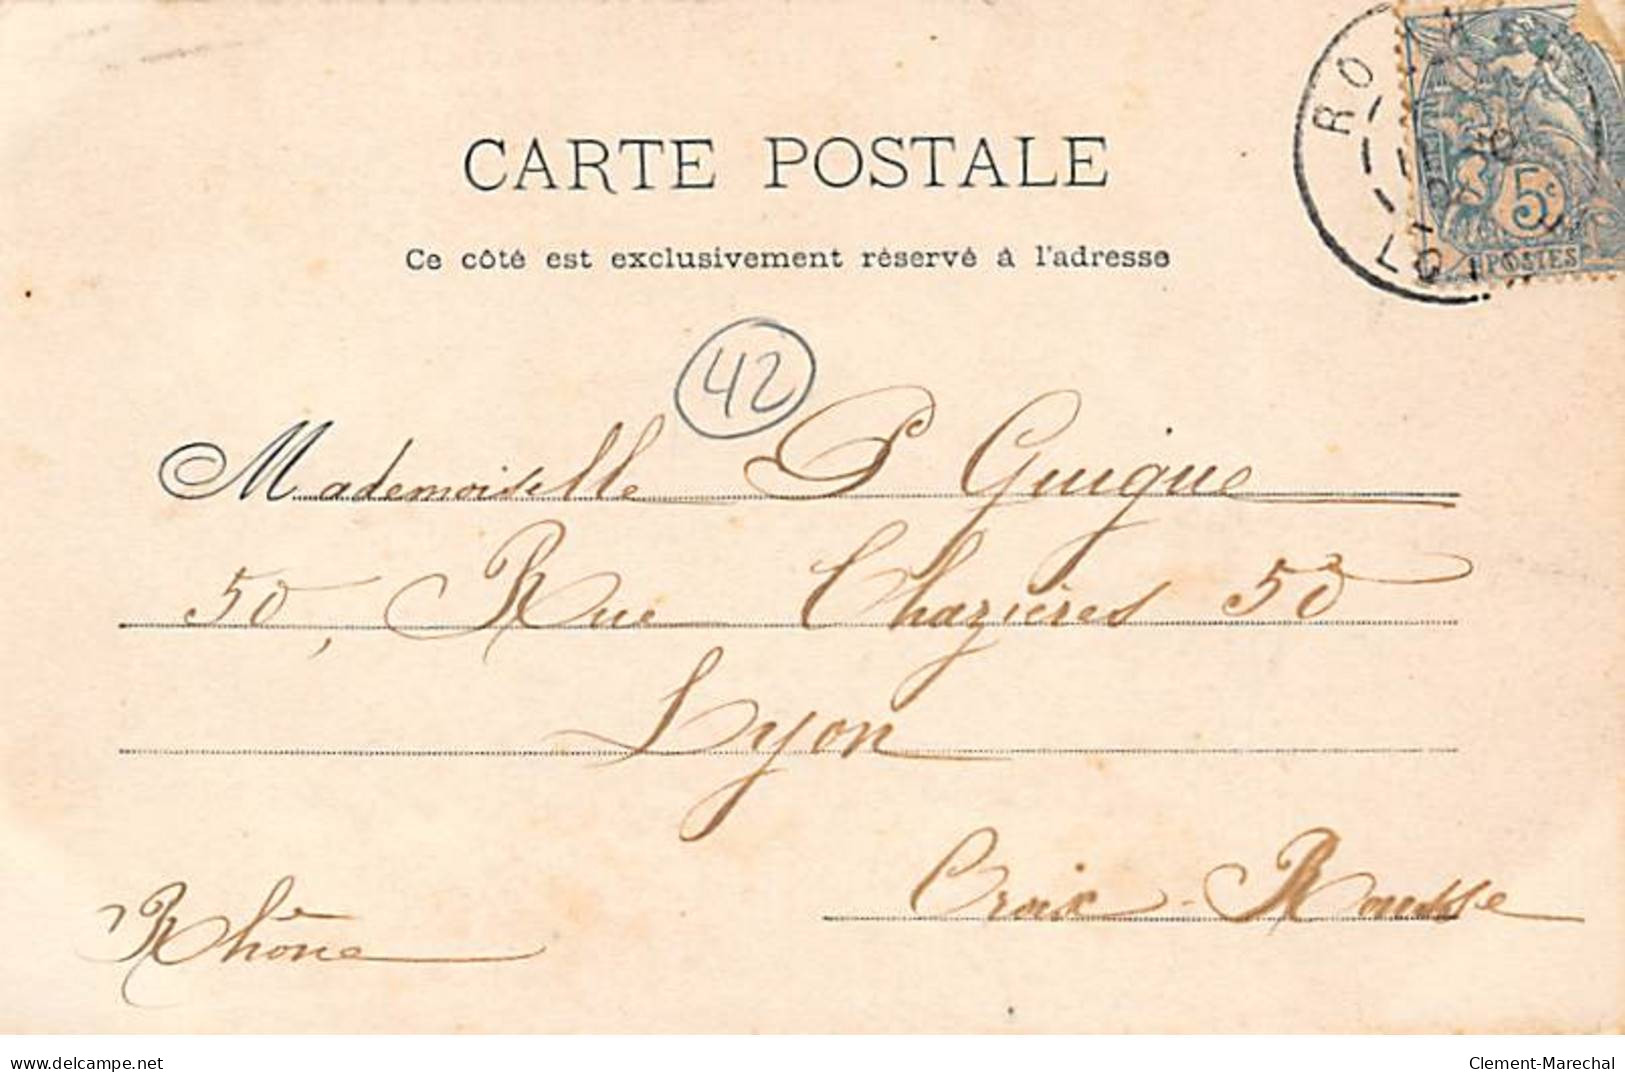 CARTE POSTALE
Ce côté est exclusivement réservé à l'adresse
42
Mademoiselle P Guigue
50, Rue Chazières 50
Lyon
Croix-Rousse
Rhône
RO
LOI
5c
POSTES
www.delcampe.net
Clement-Marechal